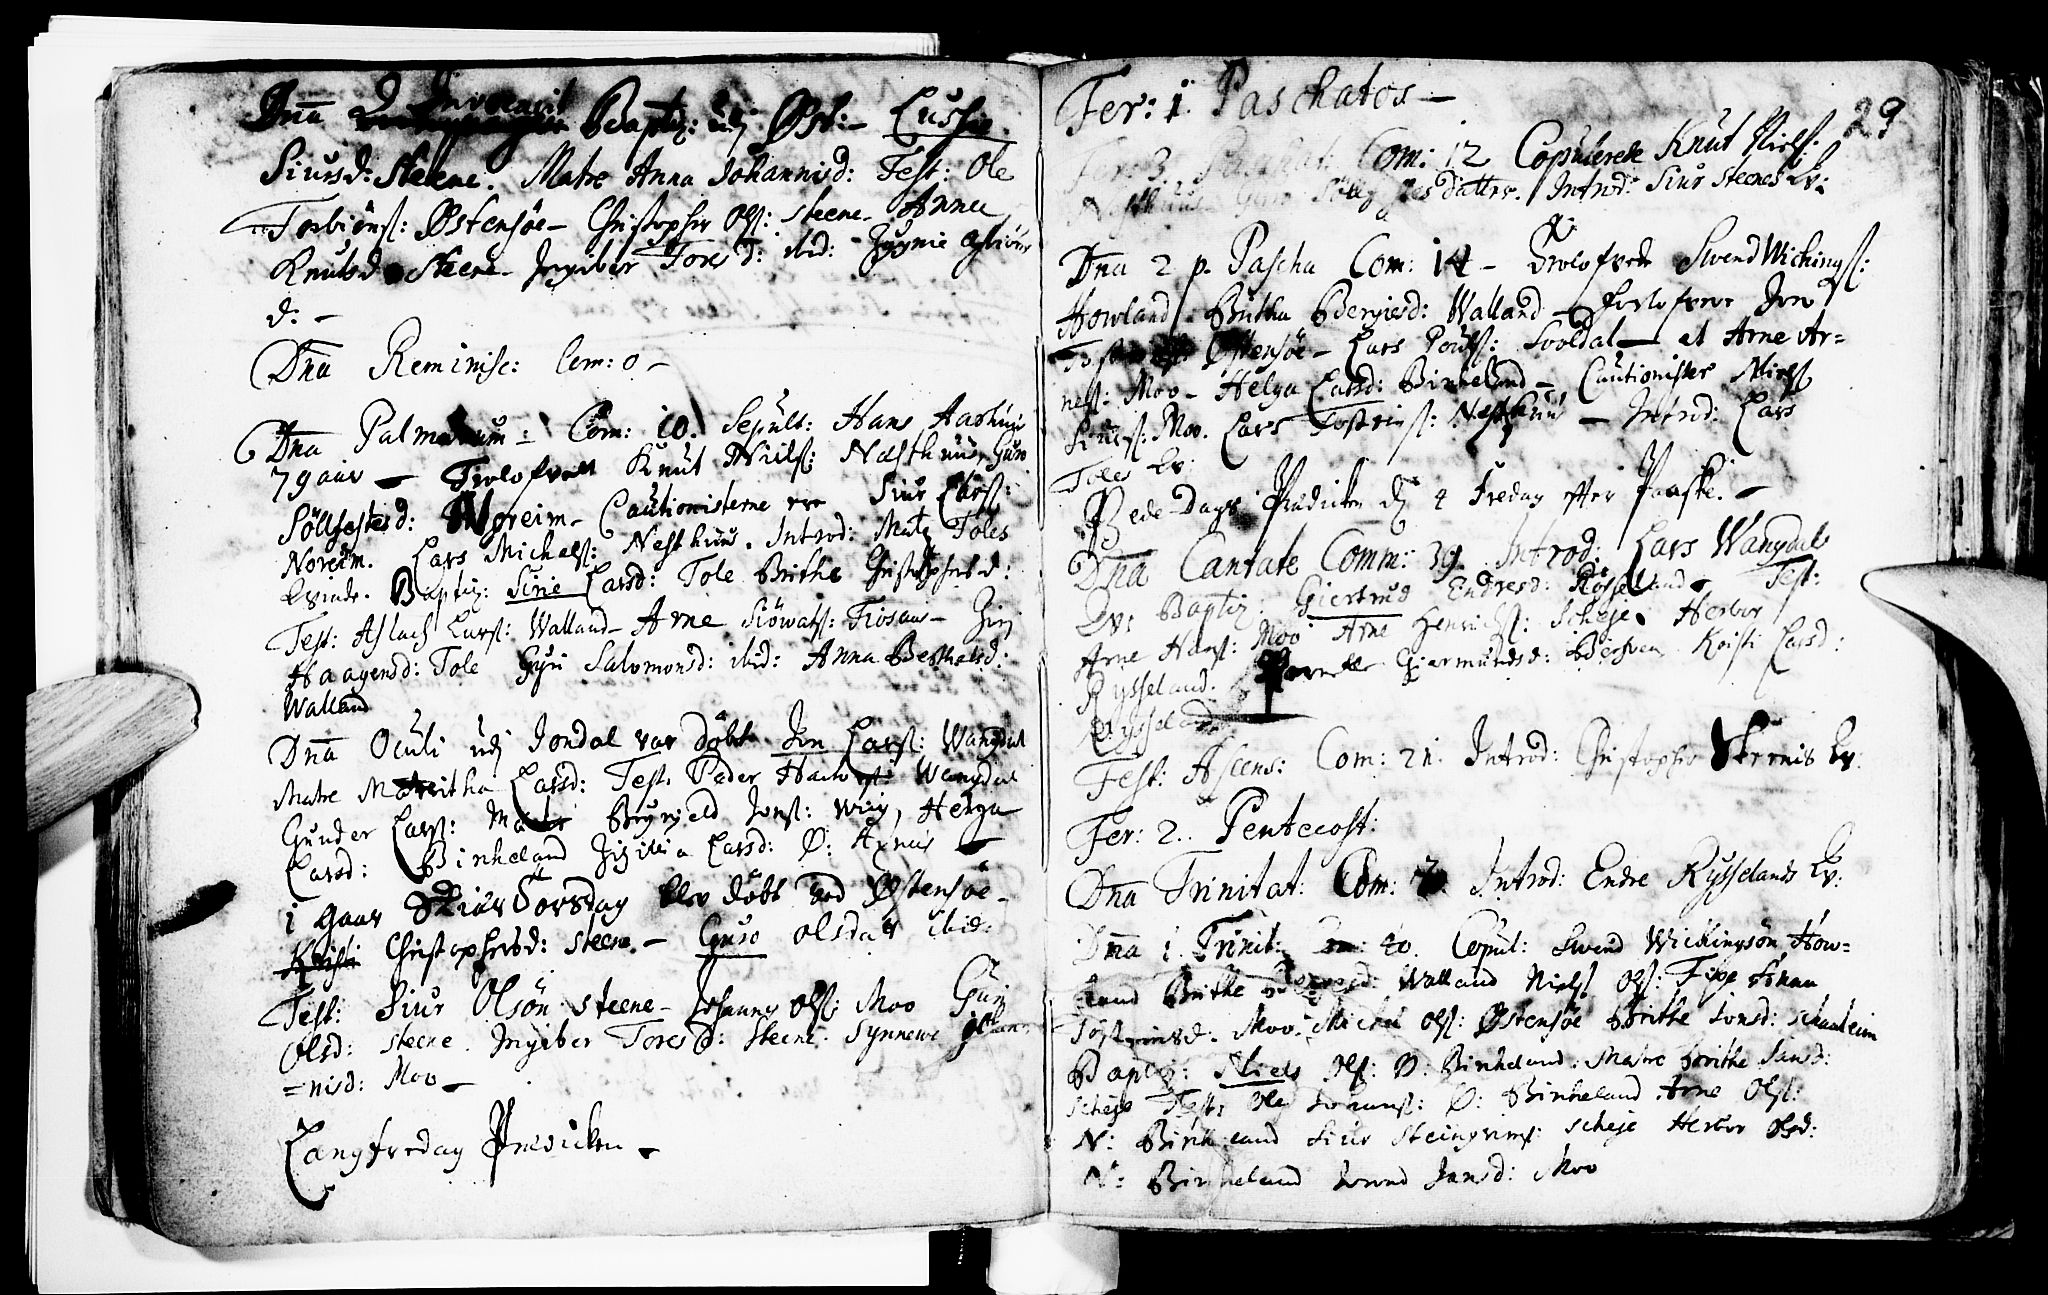 Dna Invocavit Baptiz: udj Øst:
Siursd: Steene. Matre Anna Johannisd: Test: Ole
Torbiönß: Østensöe - Christopher Olß: Steene - Anna
Knutsd Steene - Ingiber Toresd: ibid:
d: -
Dna Reminisc: Com: 0 -
Dna Palmarum: Com: 10. Sepult: Hans Aarhuus
79 aar - Trolofvett Knut Nielß: Næsthuus, Guro
Söllfestesd: Noreim - Cautionisterne ere Siur Larß:
Noreim. Lars Michelß: Nesthuus. Introd: Toles
Kvinde. Baptiz: Sirie Larsd: Tole Brithe Christophersd:
Test: Aslach Larß: Walland - Arne Siöwatß: Fiosaas -
Haagensd: Tole Gyri Salomonsd: ibid: Anna Berthelsd:
Walland
Dna Oculi udj Jondal var döbt Jon Larß: Wangdal
Matre Maritha Larsd: Test. Peder Wangdal
Gunder Larß: Brynield Jonß: Wiig, Helga
Larsd: Birkeland Larsd: Ø: Axnäs
i gaar Skiærtorsdag blev döbt ved Østensöe -
Kristi Christophersd: Steene. - Guro Olsdatr ibid:
Test: Siur Olsön Steene - Johannes Olß: Moo Guri
Olsd: Steene. Ingiber Toresd: Steene. Synnewe Johan-
=nisd: Moo -
Langfredag Prædicken -
29
Fer: 1. Paschatos -
Fer: 3 Paschat: Com: 12 Copulerede Knut Nielß:
Nesthuus Guro Söllfestesdatter. Introd: Siur Steenes Kv:
Dna 2 p. Pascha Com: 14 - Trolofvede Swend Wichingß:
Howland Britha Bergesd: Walland - Jon
Østensöe - Lars Povelß: Sooldal - et Arne Ar=
neß: Moo - Helga Larsd: Birkeland - Cautionister Nielß
Siurß: Moo. Lars Tostenß: Nesthuus - Introd: Lars
Toles Kv:
Bede-Dags Prædicken d 4 Fredag efter Paaske. -
Dna Cantate Comm: 39. Introd: Lars Wangdals
Kv: Baptiz: Giertrud Endresd: Rysseland - Test:
Arne Hanß: Moo Arne Henrichß: Scheje. Herbor
Rysseland. Giermundsd: Berven Kristi Larsd:
Rysseland
Fest: Ascens: Com: 21. Introd: Christopher Steenes Kv:
Fer: 2. Pentecost:
Dna Trinitat: Com: Introd: Endre Rysselands Kv:
Dna 1. Trinit: Com: 40. Copul: Swend Wichingsön How=
land Brithe Bergesd: Walland Nielß Olß:
Tostensd. Moo. Michel Olß: Østensöe Brithe Jonsd:
Baptiz: Niels Olß: Ø: Birkeland. Matre Brithe Jansd:
Scheje Test: Ole Ø: Birkeland Arne Olß:
N: Birkeland Siur Steingrimß: Scheje Herbor Olsd:
N: Birkeland Jansd: Moo